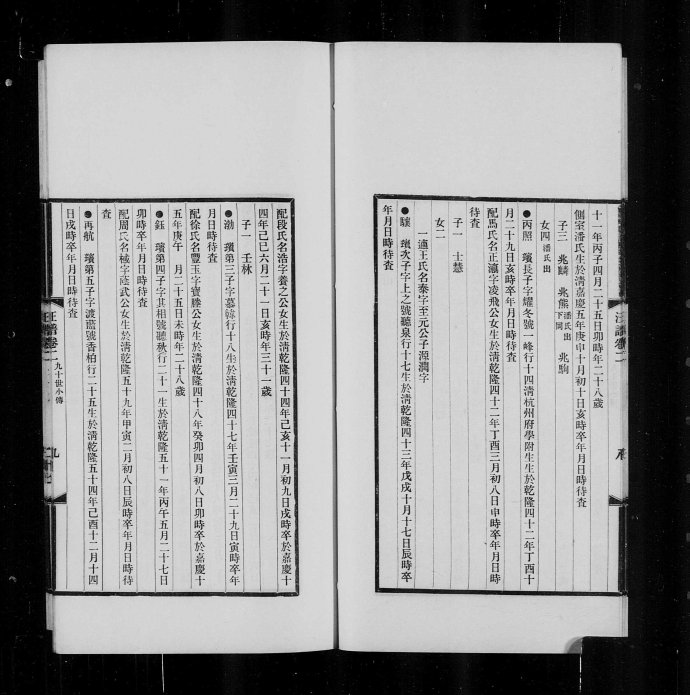 十一年丙子四月二十五日卯時年二十八歲
側室潘氏生於清嘉慶五年庚申十月初十日亥時卒年月日時待查
子三 兆麟 兆熊潘氏出下同 兆駒
女四潘氏出
●丙照 璸長子字耀冬號一峰行十四清杭州府學附生生於乾隆四十二年丁酉十
月二十九日亥時卒年月日時待查
配馬氏名正瀛字凌飛公女生於清乾隆四十二年丁酉三月初八日申時卒年月日時
待查
子一 士慧
女二
一適王氏名泰字至元公子源潤字
●驤 璸次子字上之號聽泉行十七生於清乾隆四十三年戊戌十月十七日辰時卒
年月日時待查
汪譜卷二
配段氏名浩字養之公女生於清乾隆四十四年己亥十一月初九日戌時卒於嘉慶十
四年己巳六月二十一日亥時年三十一歲
子一 壬林
●渤 璸第三子字慕韓行十八生於清乾隆四十七年壬寅三月二十九日寅時卒年
月日時待查
配徐氏名豐玉字寶滕公女生於清乾隆四十八年癸卯四月初八日卯時卒於嘉慶十
五年庚午 月二十五日未時年二十八歲
●鈺 璸第四子字其相號聽秋行二十一生於清乾隆五十一年丙午五月二十七日
卯時卒年月日時待查
配周氏名極字蔭武公女生於清乾隆五十九年甲寅二月初八日辰時卒年月日時待
查
●再航 璸第五子字渡藍號香柏行二十五生於清乾隆五十四年己酉十二月十四
日戌時卒年月日時待查
汪譜卷二 九十世小傳